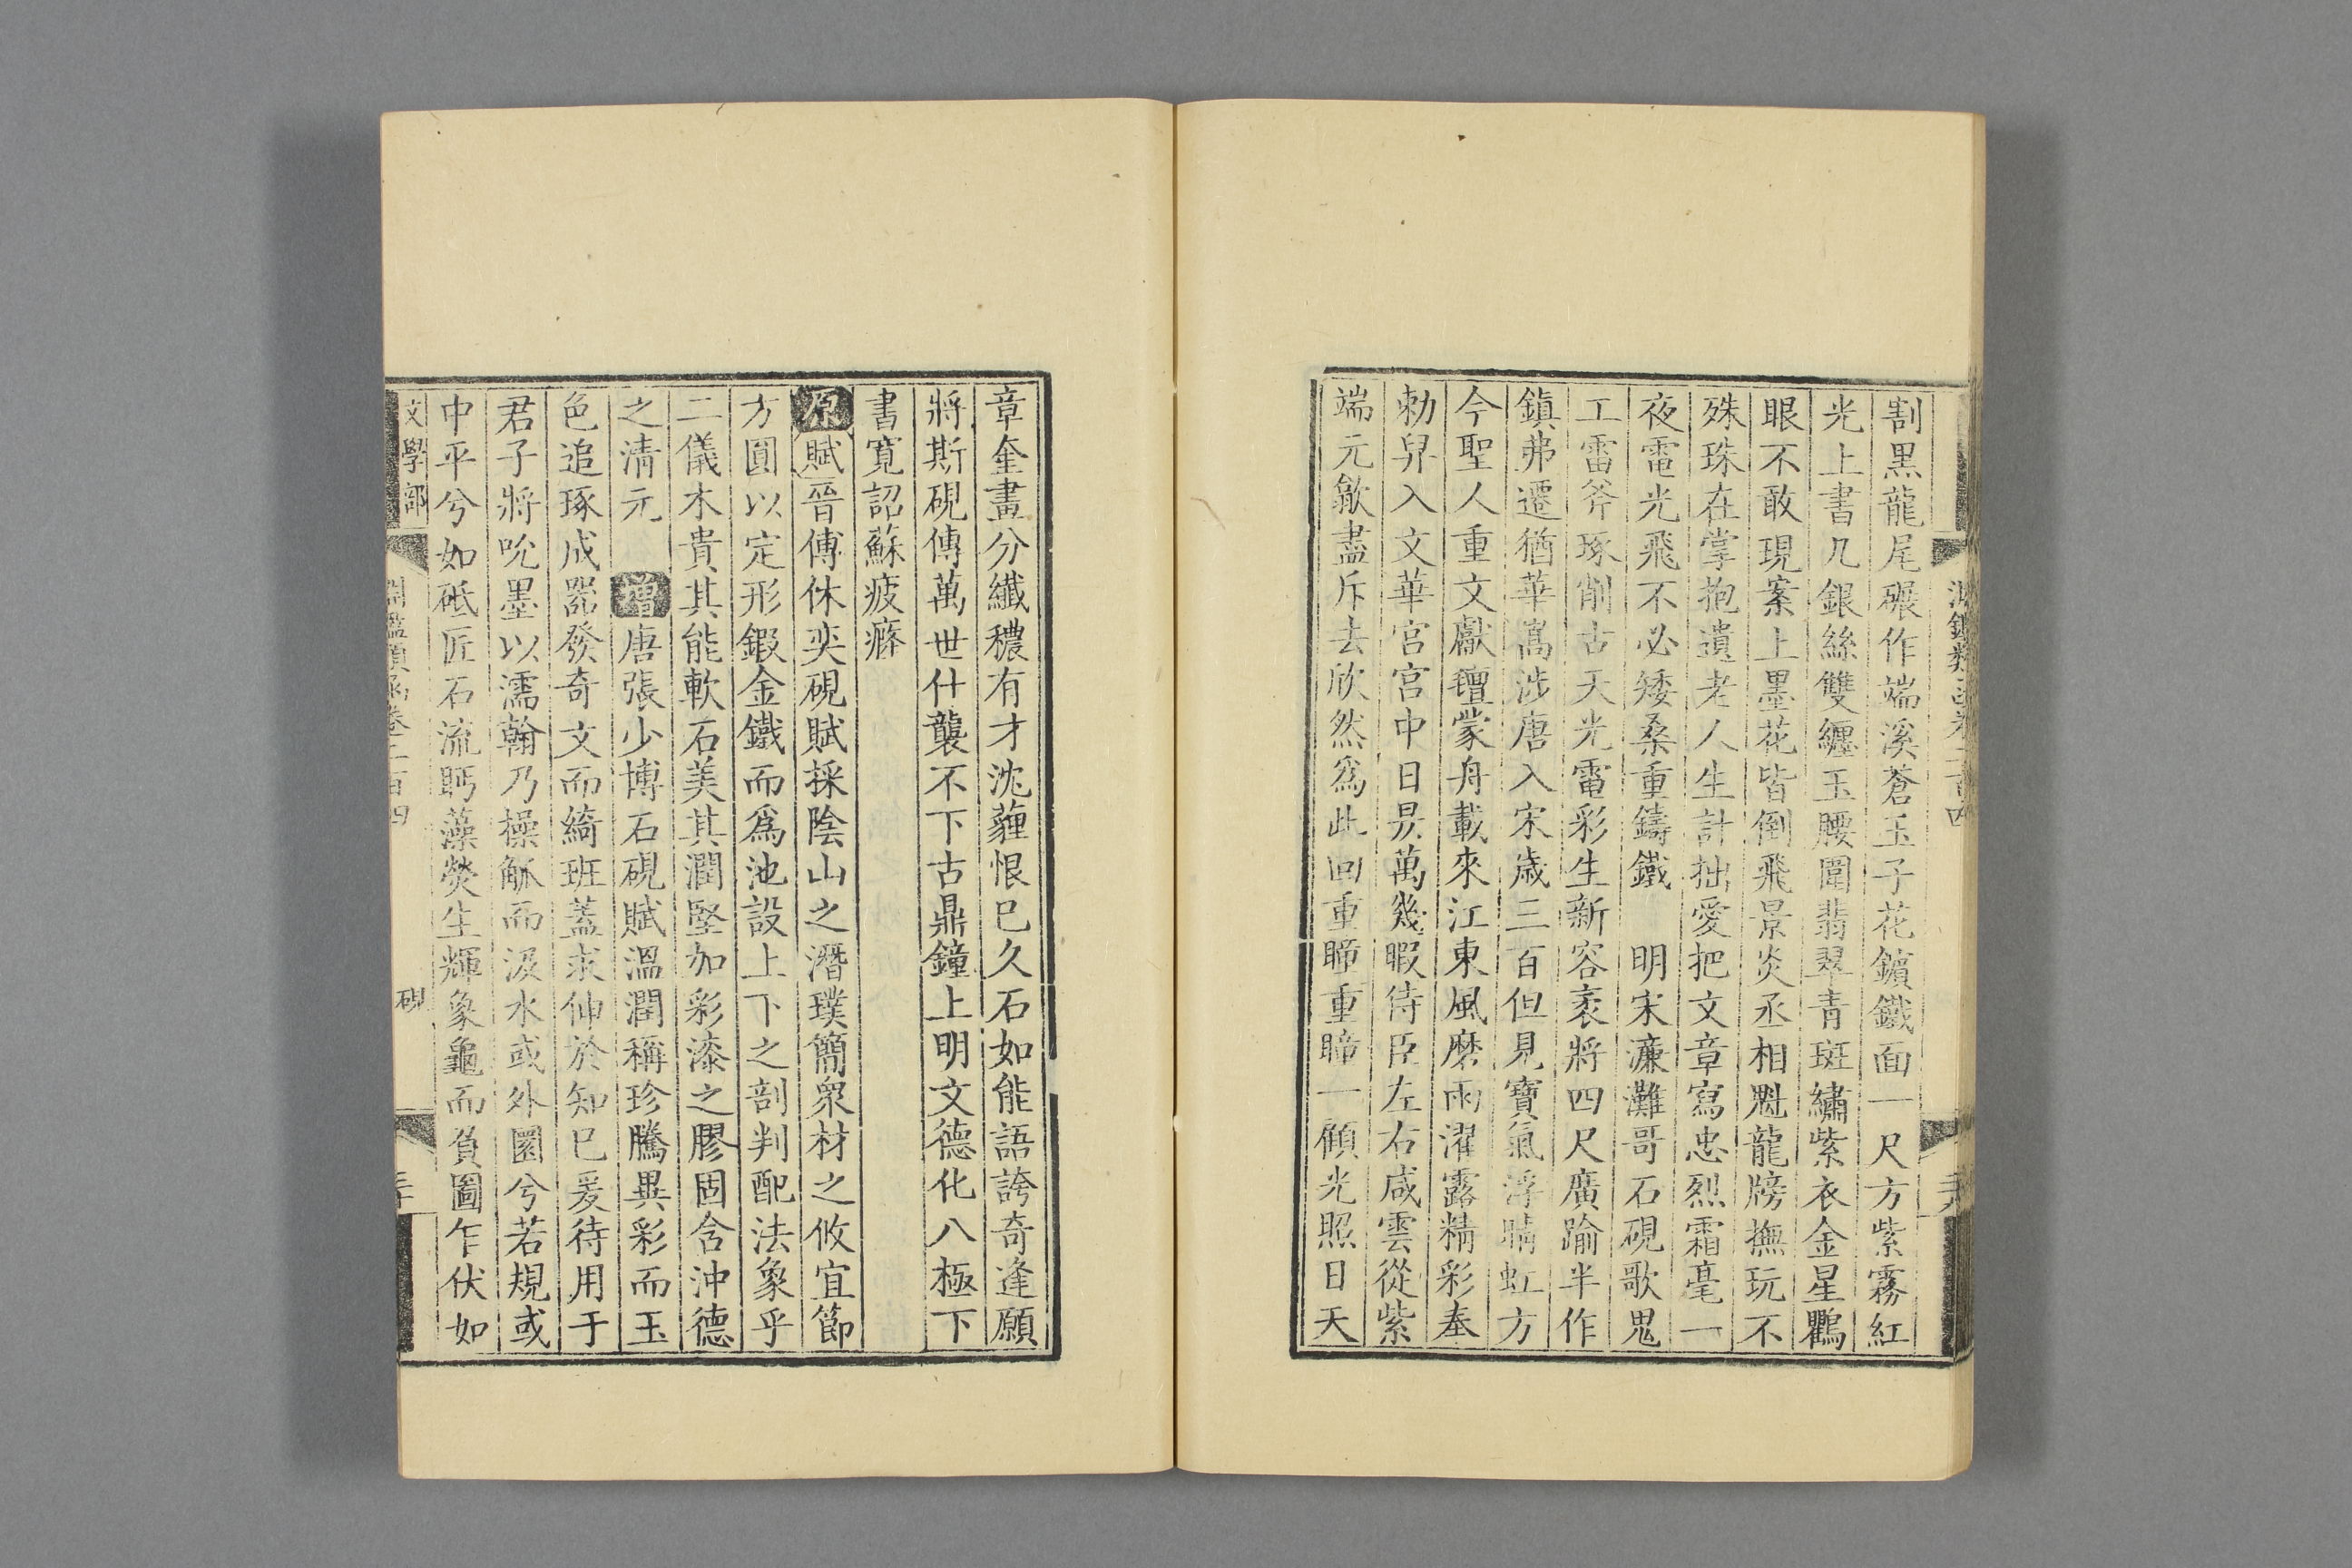 割黒龍尾碾作端溪蒼玉子花鑌鐵面一尺方紫霧紅
光上書几銀絲雙纒玉腰圍翡翠青斑繡紫衣金星鸜
眼不敢現案上墨花皆倒飛景炎丞相魁龍牓撫玩不
殊珠在掌抱遺老人生計拙愛把文章寫忠烈霜毫一
夜電光飛不必矮桑重鑄鐵 明宋濂灘哥石硯歌鬼
工雷斧琢削古天光電彩生新容袤將四尺廣踰半作
鎮弗遷猶華嵩涉唐入宋歳三百但見寶氣浮晴虹方
今聖人重文獻氊蒙舟載來江東風磨雨濯露精彩奉
勅舁入文華宫宫中日昃萬幾暇待臣左右咸雲從紫
端元歙盡斥去欣然爲此回重瞳重瞳一顧光照日天
章奎畫分纖穠有才沈薶恨巳久石如能語誇奇逢願
將斯硯傳萬世什襲不下古鼎鐘上明文德化八極下
書寬詔蘇疲癃
原賦晉傅休奕硯賦採陰山之潛璞簡衆材之攸宜節
方圓以定形鍛金鐵而爲池設上下之剖判配法象乎
二儀木貴其能軟石美其潤堅加彩漆之膠固含沖德
之清元 增唐張少博石硯賦溫潤稱珍騰異彩而玉
色追琢成器發奇文而綺班蓋求伸於知巳爰待用于
君子將吮墨以濡翰乃操觚而汲水或外圜兮若規或
中平兮如砥匠石流眄藻熒生輝象龜而負圖乍伏如
文學部
淵鑑類函卷二百四
硯